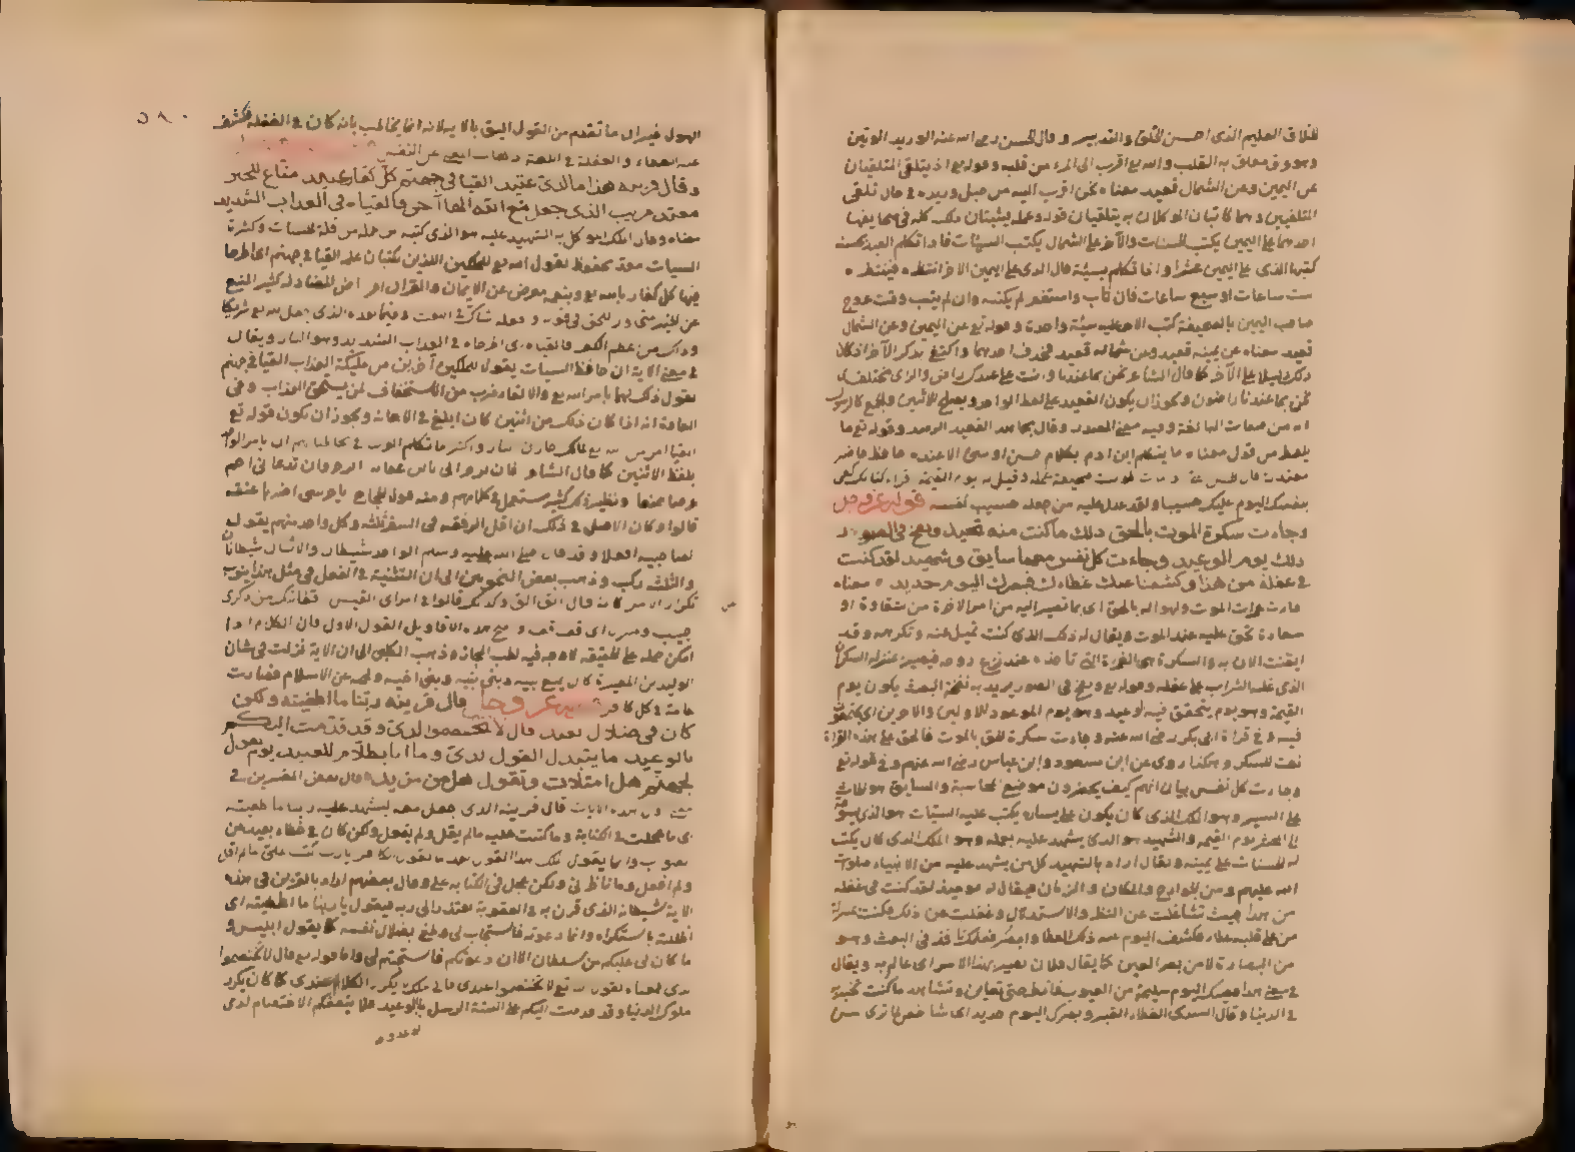 الخلاق العليم الذي احسن الخلق والتدبير وقال الحسن رضي الله عنه الوريد الوتين
وهو عرق معلق به القلب والله تع اقرب الى المرء من قلبه وقوله تع اذ يتلقى المتلقيان
عن اليمين وعن الشمال قعيد معناه نحن اقرب اليه من حبل وريده في حال تلقي
المتلقيين وهما كاتبان الموكلان به يتلقيان قوله وعمله يثبتان ذلك كله في صحايفها
احدهما على اليمين يكتب الحسنات والآخر على الشمال يكتب السيئات فاذا تكلم العبد بحسنة
كتبها الذي على اليمين عشرا واذا تكلم بسيئة قال الذي على اليمين للآخر انتظره فينتظره
ست ساعات او سبع ساعات فان تاب واستغفر لم يكتبه وان لم يتب وقت عروج
صاحب اليمين بالصحيفة كتب الآخر عليه سيئة واحدة وقوله تع عن اليمين وعن الشمال
قعيد معناه عن يمينه قعيد وعن شماله قعيد فحذف احدهما واكتفى بذكر الآخر اذ كان
ذلك دليلا على الآخر كما قال الشاعر نحن بما عندنا وانت بما عندك راض والراى مختلف اى
نحن بما عندنا راضون ويجوز ان يكون القعيد على لفظ الواحد ويصلح للاثنين والجمع كالرسول
انه من صفات المبالغة وفيه معنى المصدر وقال مجاهد القعيد الرصد وقوله تع ما
يلفظ من قول معناه ما يتكلم ابن ادم بكلام حسن او سيئ الا عنده حافظ حاضر
معتد قال الحسن فاذا مات طويت صحيفة عمله وقيل له يوم القيمة اقراء كتابك كفى
بنفسك اليوم عليك حسيبا ولقد عدل عليه من جعله حسيب نفسه قوله عز وجل
وجاءت سكرة الموت بالحق ذلك ما كنت منه تحيد ونفخ في الصور
ذلك يوم الوعيد وجاءت كل نفس معها سايق وشهيد لقد كنت
في غفلة من هذا فكشفنا عنك غطاءك فبصرك اليوم حديد معناه
جاءت غمرات الموت واهواله بالحق اى بما تصير اليه من امر الآخرة من شقاوة او
سعادة تحق عليه عند الموت ويقال له ذلك الذى كنت تميل عنه وتكرهه وقد
ايقنت الان به والسكرة هى الغمرة التي تاخذه عند نزع روحه فيصير بمنزلة السكران
الذى غلب الشراب على عقله وقوله تع ونفخ في الصور يريد به نفخة البعث يكون يوم
القيمة وهو يوم يتحقق فيه الوعيد وهو يوم الموعود للاولين والآخرين اى يجتمعون
فيه وفي قراءة ابى بكر رضي الله عنه وجاءت سكرة الحق بالموت فالحق على هذه القراءة
نعت للسكر وهكذا روى عن ابن مسعود وابن عباس رضي الله عنهم وفي قوله تع
وجاءت كل نفس بيان انهم كيف يحضرون موضع المحاسبة والسايق هو الحاث
على السير وهو الملك الذى كان يكون على يساره يكتب عليه السيئات هو الذي يسوقه
الى المحشر يوم القيمة والشهيد هو الذى يشهد عليه بعمله وهو الملك الذى كان يكتب
له الحسنات على يمينه ويقال اراد بالشهيد كل من يشهد عليه من الانبياء صلوات
الله عليهم ومن الجوارح والمكان والزمان فيقال له يومئذ لقد كنت في غفلة
من هذا حيث تشاغلت عن النظر والاستدلال وغفلت عن ذلك فكنت بمنزلة
من على قلبه غطاء فكشف اليوم عنه ذلك الغطاء وابصر فعلك نافذ في البعث وهو
من البصارة لا من بصر العين كما يقال فلان بصير بهذا الامر اى عالم به ويقال
في معنى هذا بصرك اليوم سليمة من العيوب فانظر حتى تعاين وتشاهد ما كنت تخبره
في الدنيا وقال السدى الغطاء القبر وبصرك اليوم حديد اى شاخص لما ترى من
٥٨٠
الهول غير ان ما تقدم من القول اليق بالاية لانه انما يخاطب بانه كان في الغفلة فكشف
عنه الغطاء والغفلة في اللغة ذهاب المعنى عن النفس
وقال قرينه هذا ما لدى عتيد القيا في جهنم كل كفار عنيد مناع للخير
معتد مريب الذى جعل مع الله الها آخر فالقياه في العذاب الشديد
معناه وقال الملك الموكل به الشهيد عليه هو الذى كتبه من عمله من قلة الحسنات وكثرة
السيات معد محفوظ يقول الله تع للملكين اللذين يكتبان عليه القيا في جهنم اى اطرحا
فيها كل كفار بالله تع وبنعمه معرض عن الايمان والقران امر اض المضادله كثير المنع
عن الخير متجاوز للحق في قوله وفعله شاك في البعث وفيما بعده الذى جعل لله تع شريكا
وذلك من عظم الكفر فالقياه اى اطرحاه في العذاب الشديد وهو النار ويقال
في معنى الاية ان حافظ السيات يقول للملكين آخرين من مليكة العذاب القيا في جهنم
يقول ذلك لهما بامر الله تع والالقاء ضرب من الاستخفاف لمن يستحق العذاب وفى
العادة انه اذا كان ذلك من اثنين كان ابلغ في الاهانة ويجوز ان يكون قوله تع
القيا امر من الله تع لمالك خازن النار واكثر ما تكلم العرب في مخاطباتهم ان يامر الواحد
بلفظ الاثنين كما قال الشاعر فان تزجرانى يا ابن عفان انزجر وان تدعانى احم
عرضا ممنعا ونظير ذلك كثير مستعمل في كلامهم ومنه قول الحجاج يا حرسى اضربا عنقه
قالوا وكان الاصل في ذلك ان اقل الرفقة في السفر ثلثة وكل واحد منهم يقول
لصاحبيه افعلا وقد قال صلى الله عليه وسلم الواحد شيطان والاثنان شيطانان
والثلثة ركب وذهب بعض النحويين الى ان التثنية في الفعل في مثل هذا ينوب
تكرار الامر كانه قال الق الق وكذلك قالوا في امراى القيس قفا نبك من ذكرى
حبيب ومنزل اى قف قف واصح هذه الاقاويل القول الاول فان الكلام اذا
امكن حمله على الحقيقة لا وجه فيه لطلب المجاز وذهب الكلبى الى ان الاية نزلت في شان
الوليد بن المغيرة كان يمنع بنيه وبنى بنيه وبنى اخيه ولحمته عن الاسلام فصارت
عامة في كل كافر قوله عز وجل قال قرينه ربنا ما اطغيته ولكن
كان في ضلال بعيد قال لا تختصموا لدى وقد قدمت اليكم
بالوعيد ما يبدل القول لدى وما انا بظلام للعبيد يوم نقول
لجهنم هل امتلأت وتقول هل من مزيد قال بعض المفسرين في
معنى هذه الايات قال قرينه الذى جعل معه يشهد عليه ربنا ما اطغيته
اى ما عجلت في الكتابة وما كتبت عليه ما لم يقل ولم يفعل ولكن كان في خطاء بعيد عن
الصواب وانما يقول الملك هذا القول بعد ما يقول الكافر يا رب كتب على ما لم اقل
ولم افعل وما ناظرنى ولكن عجل في الكتابة على وقال بعضهم اراد بالقرين في هذه
الاية شيطانه الذى قرن به في العقوبة يعتذر الى ربه فيقول يا ربنا ما اطغيته اى
اضللته باستكراه وانما دعوته فاستجاب لى وطغى بضلال نفسه كما يقول ابليس و
ما كان لى عليكم من سلطان الا ان دعوتكم فاستجبتم لى واما قوله تع قال لا تختصموا
لدى فمعناه يقول الله تع لا تختصموا عندى فانى ملك يكرر الكلام عندى كما كان يكرر
ملوك الدنيا وقد قدمت اليكم على السنة الرسل بالوعيد فلا ينفعكم الاختصام لدى